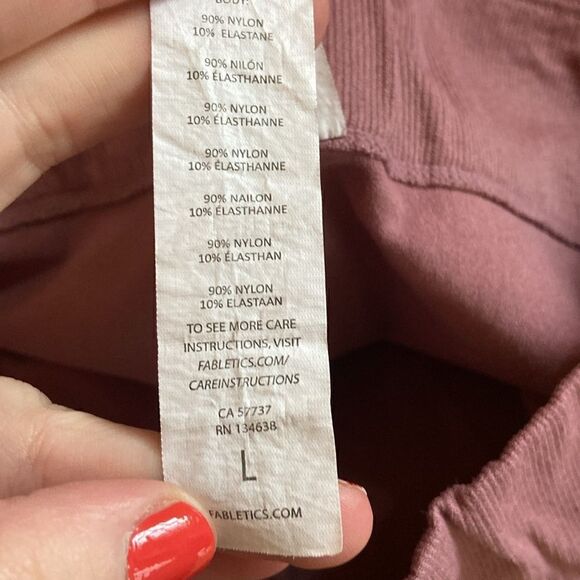 BODY:
90% NYLON
10% ELASTANE
90% NILÓN
10% ÉLASTHANNE
90% NYLON
10% ÉLASTHANNE
90% NYLON
10% ÉLASTHANNE
90% NAILON
10% ÉLASTHANNE
90% NYLON
10% ELASTHAN
90% NYLON
10% ELASTAAN
TO SEE MORE CARE
INSTRUCTIONS, VISIT
FABLETICS.COM/
CAREINSTRUCTIONS
CA 57737
RN 134638
L
FABLETICS.COM